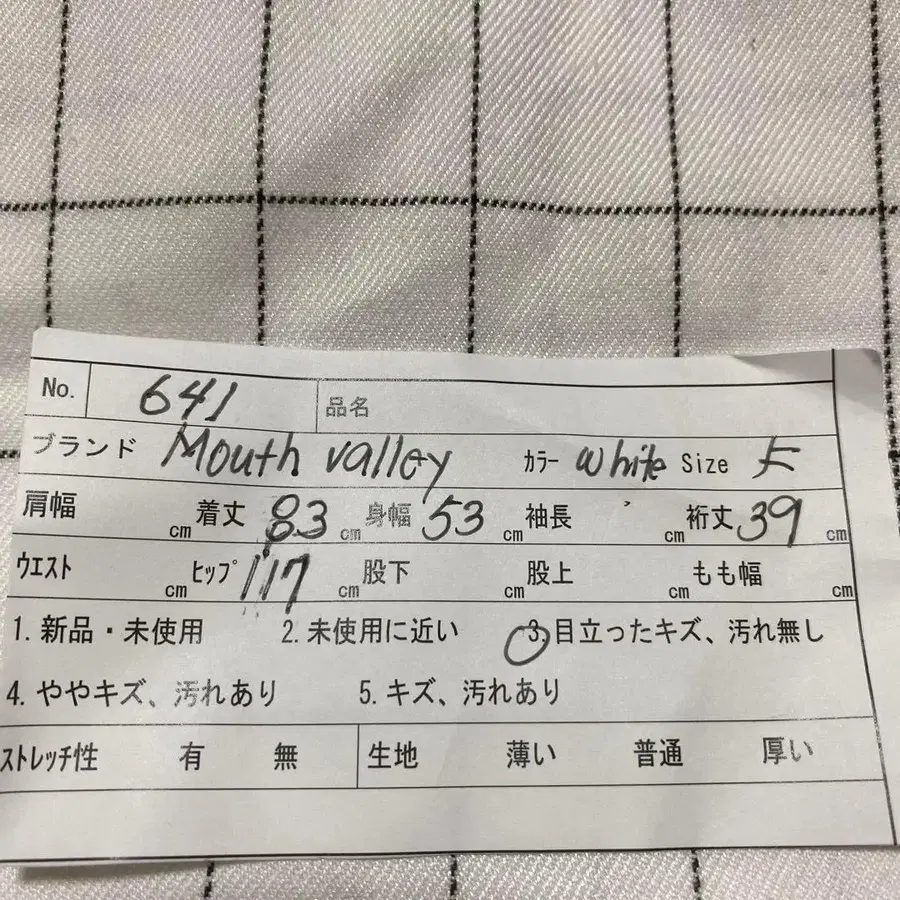 No. 641 品名
ブランド Mouth valley カラー White Size
肩幅 cm 着丈 83 cm 身幅 53 cm 袖長 cm 裄丈 39 cm
ウエスト cm ヒップ 117 cm 股下 cm 股上 cm もも幅 cm
1. 新品・未使用 2. 未使用に近い 3. 目立ったキズ、汚れ無し
4. ややキズ、汚れあり 5. キズ、汚れあり
ストレッチ性 有 無 生地 薄い 普通 厚い